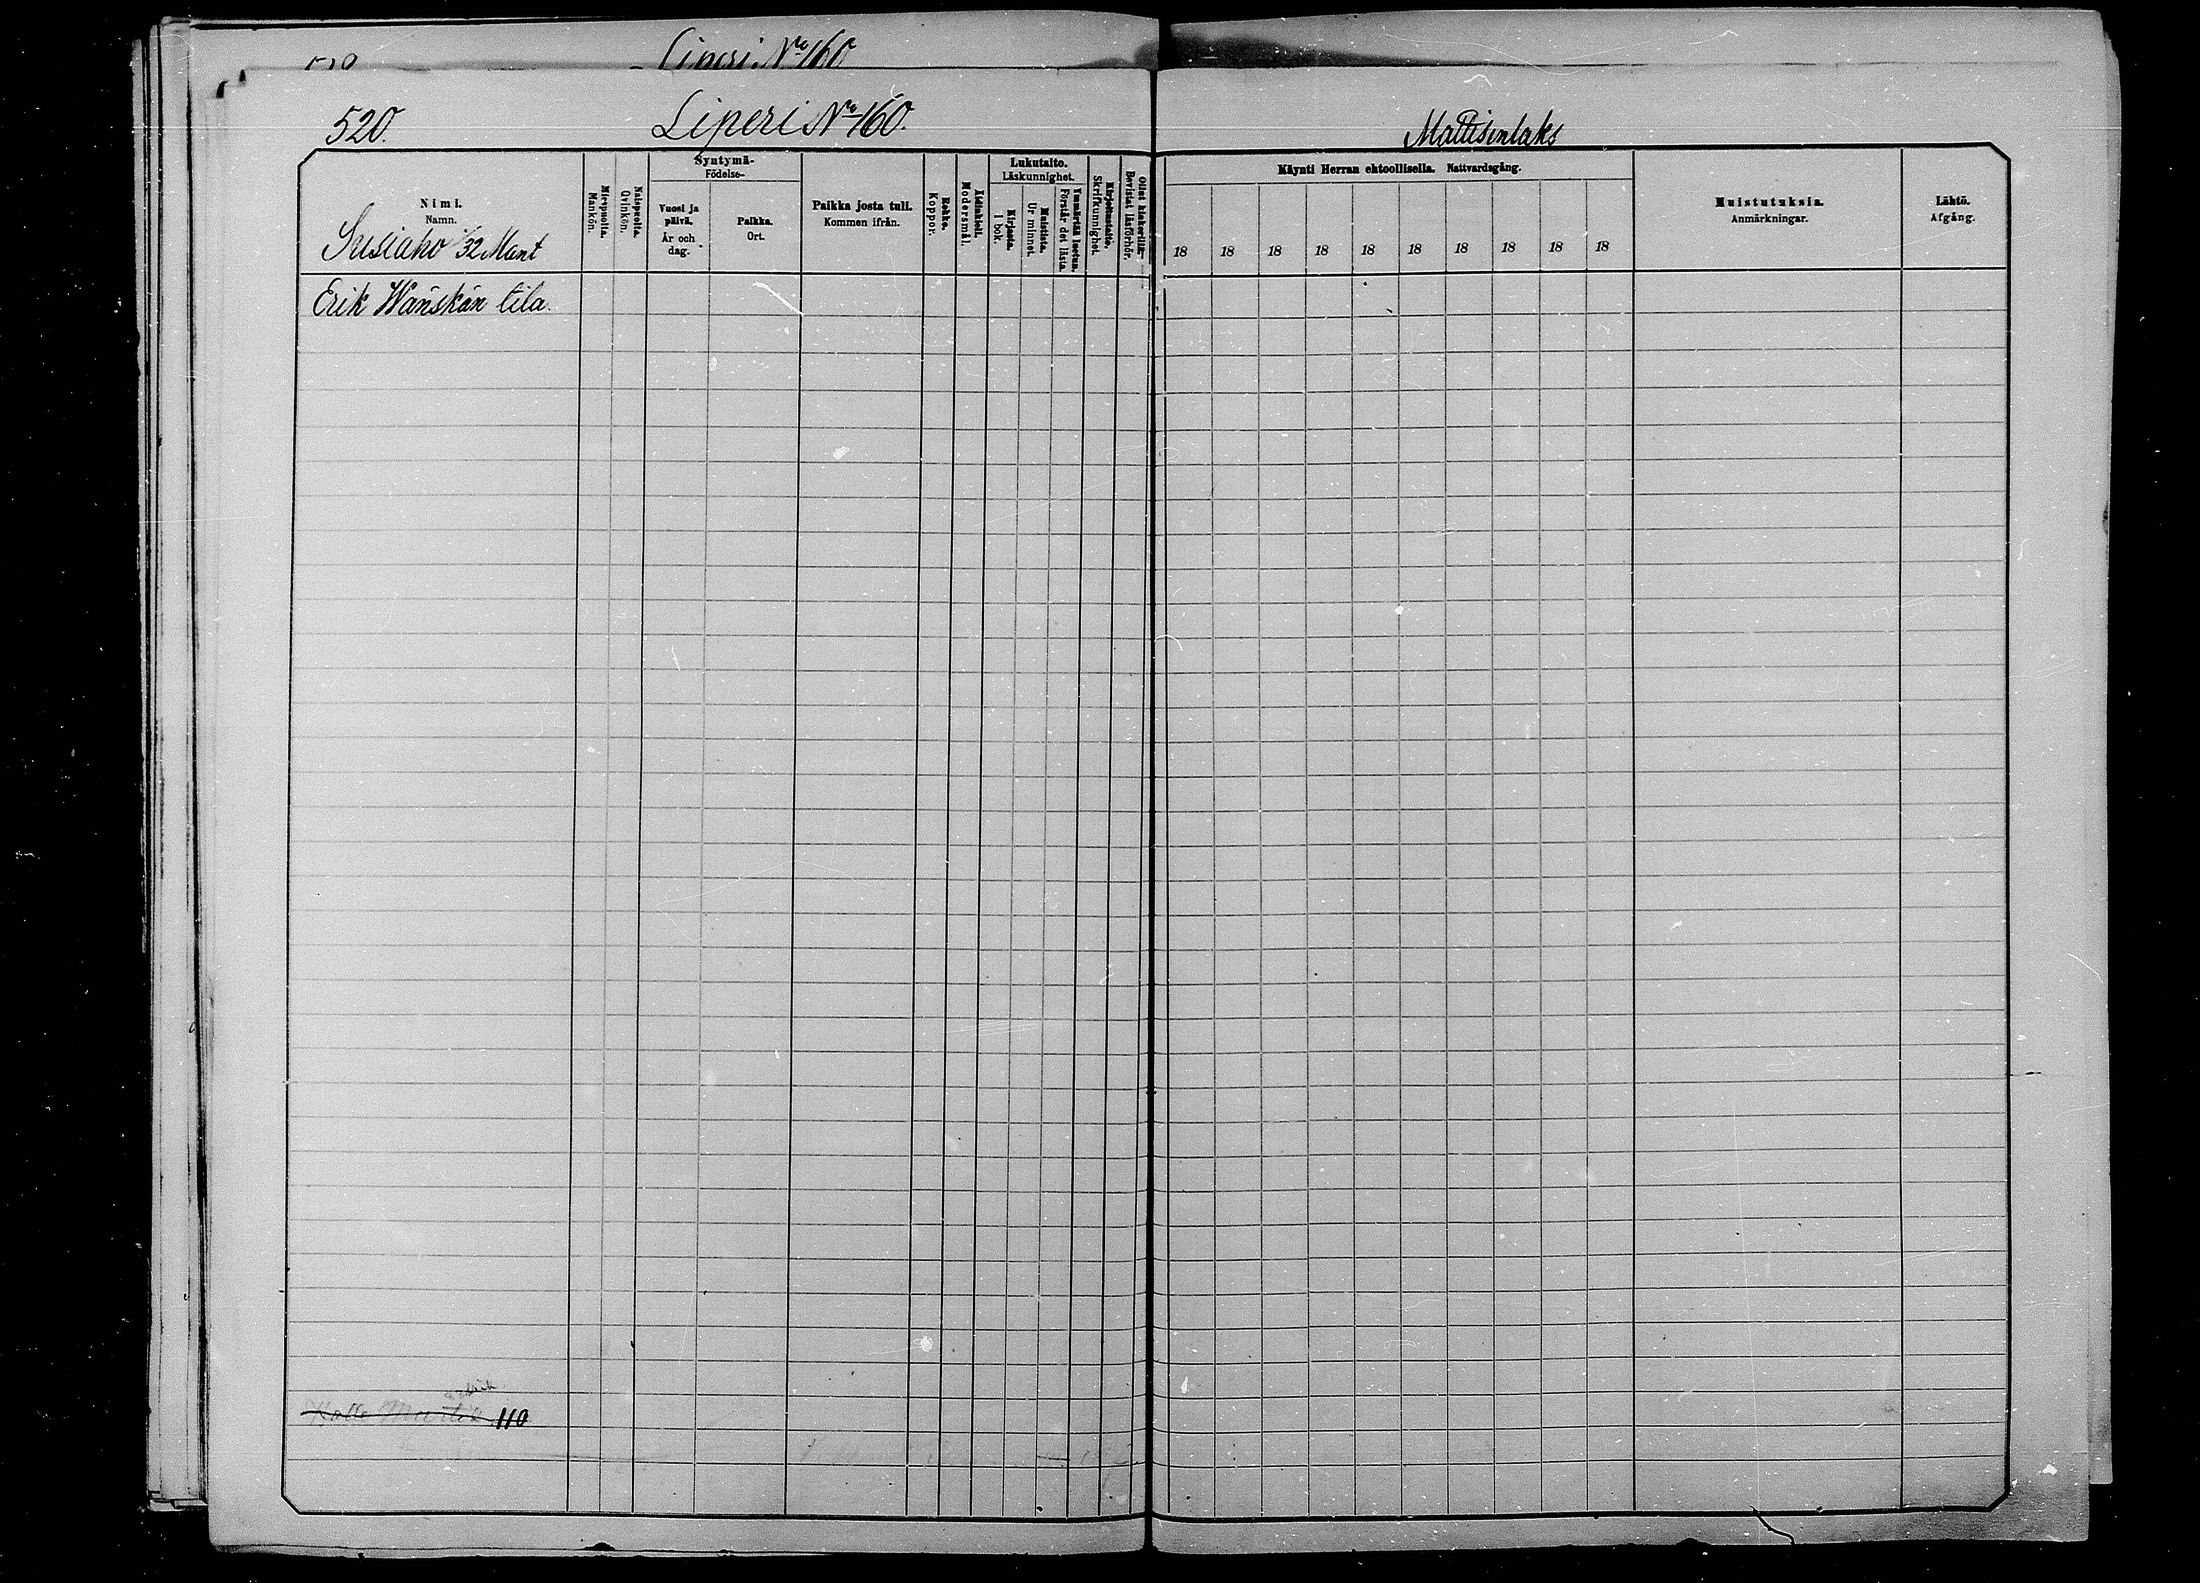 Liperi No 160
520.
Liperi No 160.
Mattisenlaks
Nimi.
Namn.
Susiaho 1/32 Mant
Miespuolia.
Mankön.
Naispuolia.
Qvinkön.
Syntymä-
Födelse-
Vuosi ja
päivä.
År och
dag.
Paikka.
Ort.
Paikka josta tuli.
Kommen ifrån.
Rokko.
Koppor.
Äidinkieli.
Modersmål.
Lukutaito.
Läskunnighet.
Kirjasta.
I bok.
Muistista.
Ur minnet.
Ymmärtää luetun.
Förstår det lästa.
Kirjoitustaito.
Skrifkunnighet.
Ollut kinkerillä.
Bevistat läsförhör.
Käynti Herran ehtoollisella. Nattvardsgång.
18 18 18 18 18 18 18 18 18 18
Muistutuksia.
Anmärkningar.
Lähtö.
Afgång.
Erik Wänskän tila.
110